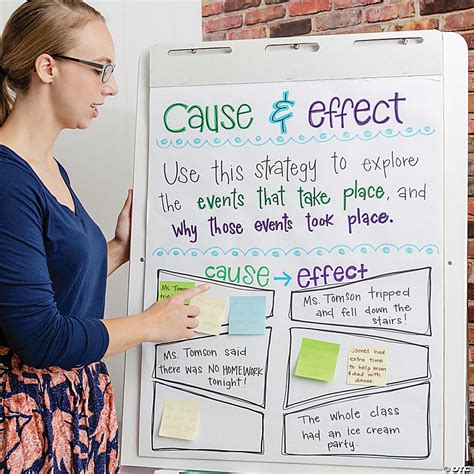 Cause & Effect
Cause & effect
Use this strategy to explore
the events that take place, and
why those events took place.
cause → effect
Ms. Tomson
Ms. Tomson tripped
and fell down the
stairs!
Ms. Tomson said
there was NO HOMEWORK
tonight!
James had
extra time
to help mom
& dad with
dinner.
The whole class
had an ice cream
party.